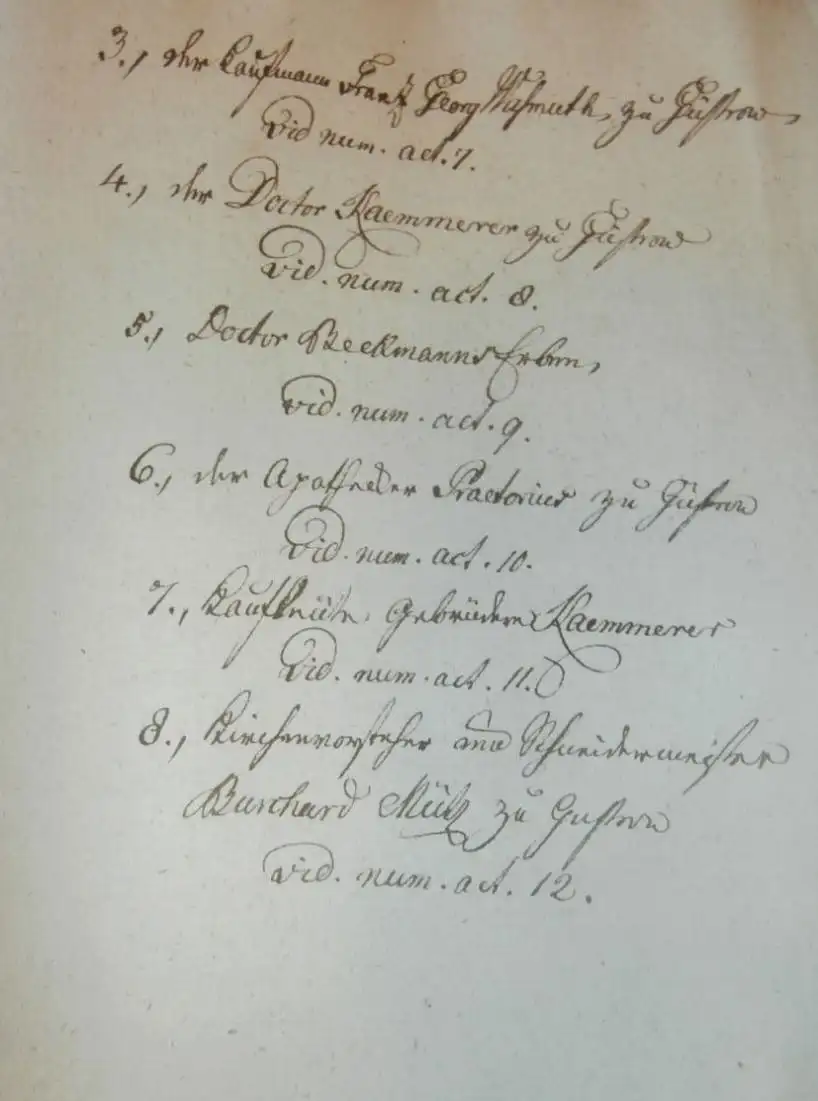 3., der Kaufmann Frantz Georg Wismuth, zu Güstrow,
vid num. act. 7.
4., der Doctor Kaemmerer zu Güstrow
vid. num. act. 8.
5., Doctor Beckmanns Erben,
vid. num. act. 9.
6., der Apothecker Praetorius zu Güstrow
vid. num. act. 10.
7., Kaufleüte, Gebrüdere Kaemmerer
vid. num. act. 11.
8., Kirchenvorsteher und Schneidermeister
Burchard Mütz zu Gustrow
vid. num. act. 12.